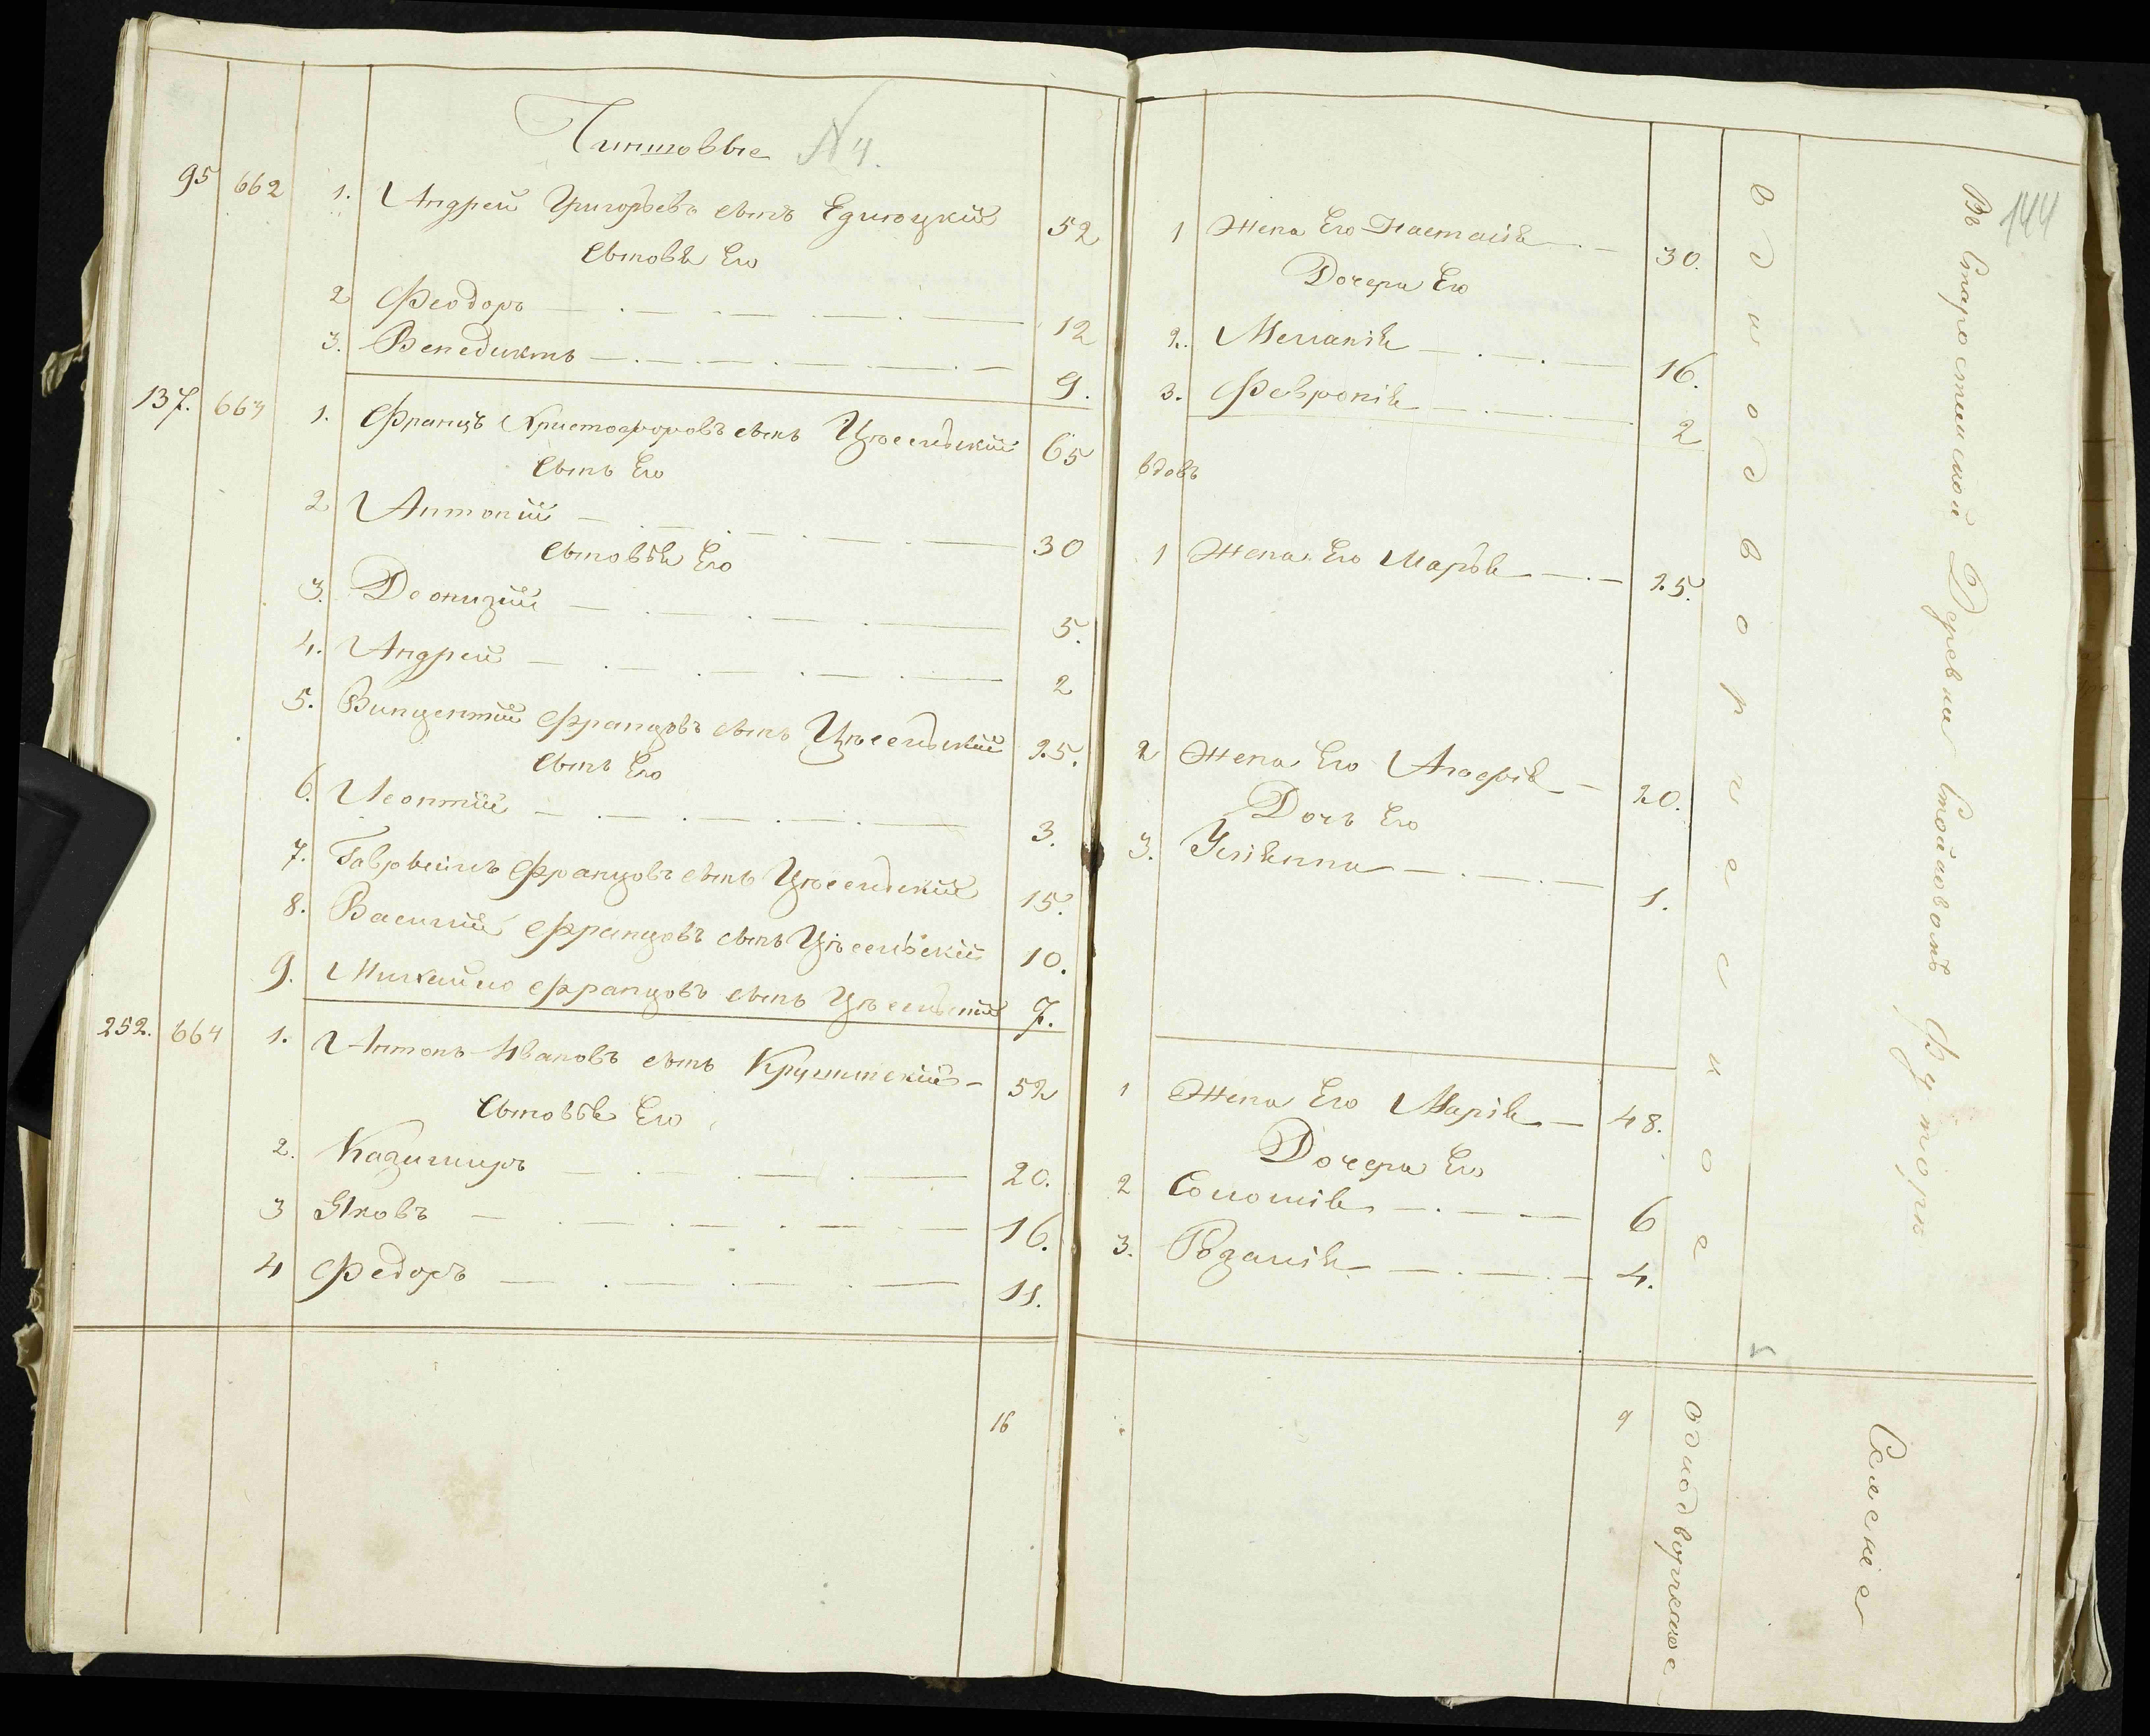 Чиншовые N 4.
95 662 1. Андрей Григорьевъ сынъ Едлюцкій 52
сыновья Его
2 Феодоръ 12
3. Венедиктъ 9.
137. 663 1. Францъ Христофоровъ сынъ 65
сынъ Его
2 Антоній 30
сыновья Его
3. Деонизій 5.
4. Андрей 2
5. Винцентій Францовъ сынъ 25.
сынъ Его
6. Леонтій 3.
7. Францовъ сынъ 15.
8. Василій Францовъ сынъ 10.
9. Михайло Францовъ сынъ 7.
252. 664 1. Антонъ Ивановъ сынъ 52
сыновья Его
2. Казимиръ 20.
3 Яковъ 16.
4 Федоръ 11.
16
144
1 Жена Его Настасія 30.
Дочери Его
2. Меланія 16.
3. Февронія 2
вдовъ
1 Жена Его Марья 25.
2 Жена Его Агафія 20.
Дочь Его
3. Уліянна 1.
1 Жена Его Марія 48.
Дочери Его
2 Соломія 6
3. Розалія 4.
9
однодворческое
однодворческое
Въ Старостинской Деревни Стойловомъ Футоръ